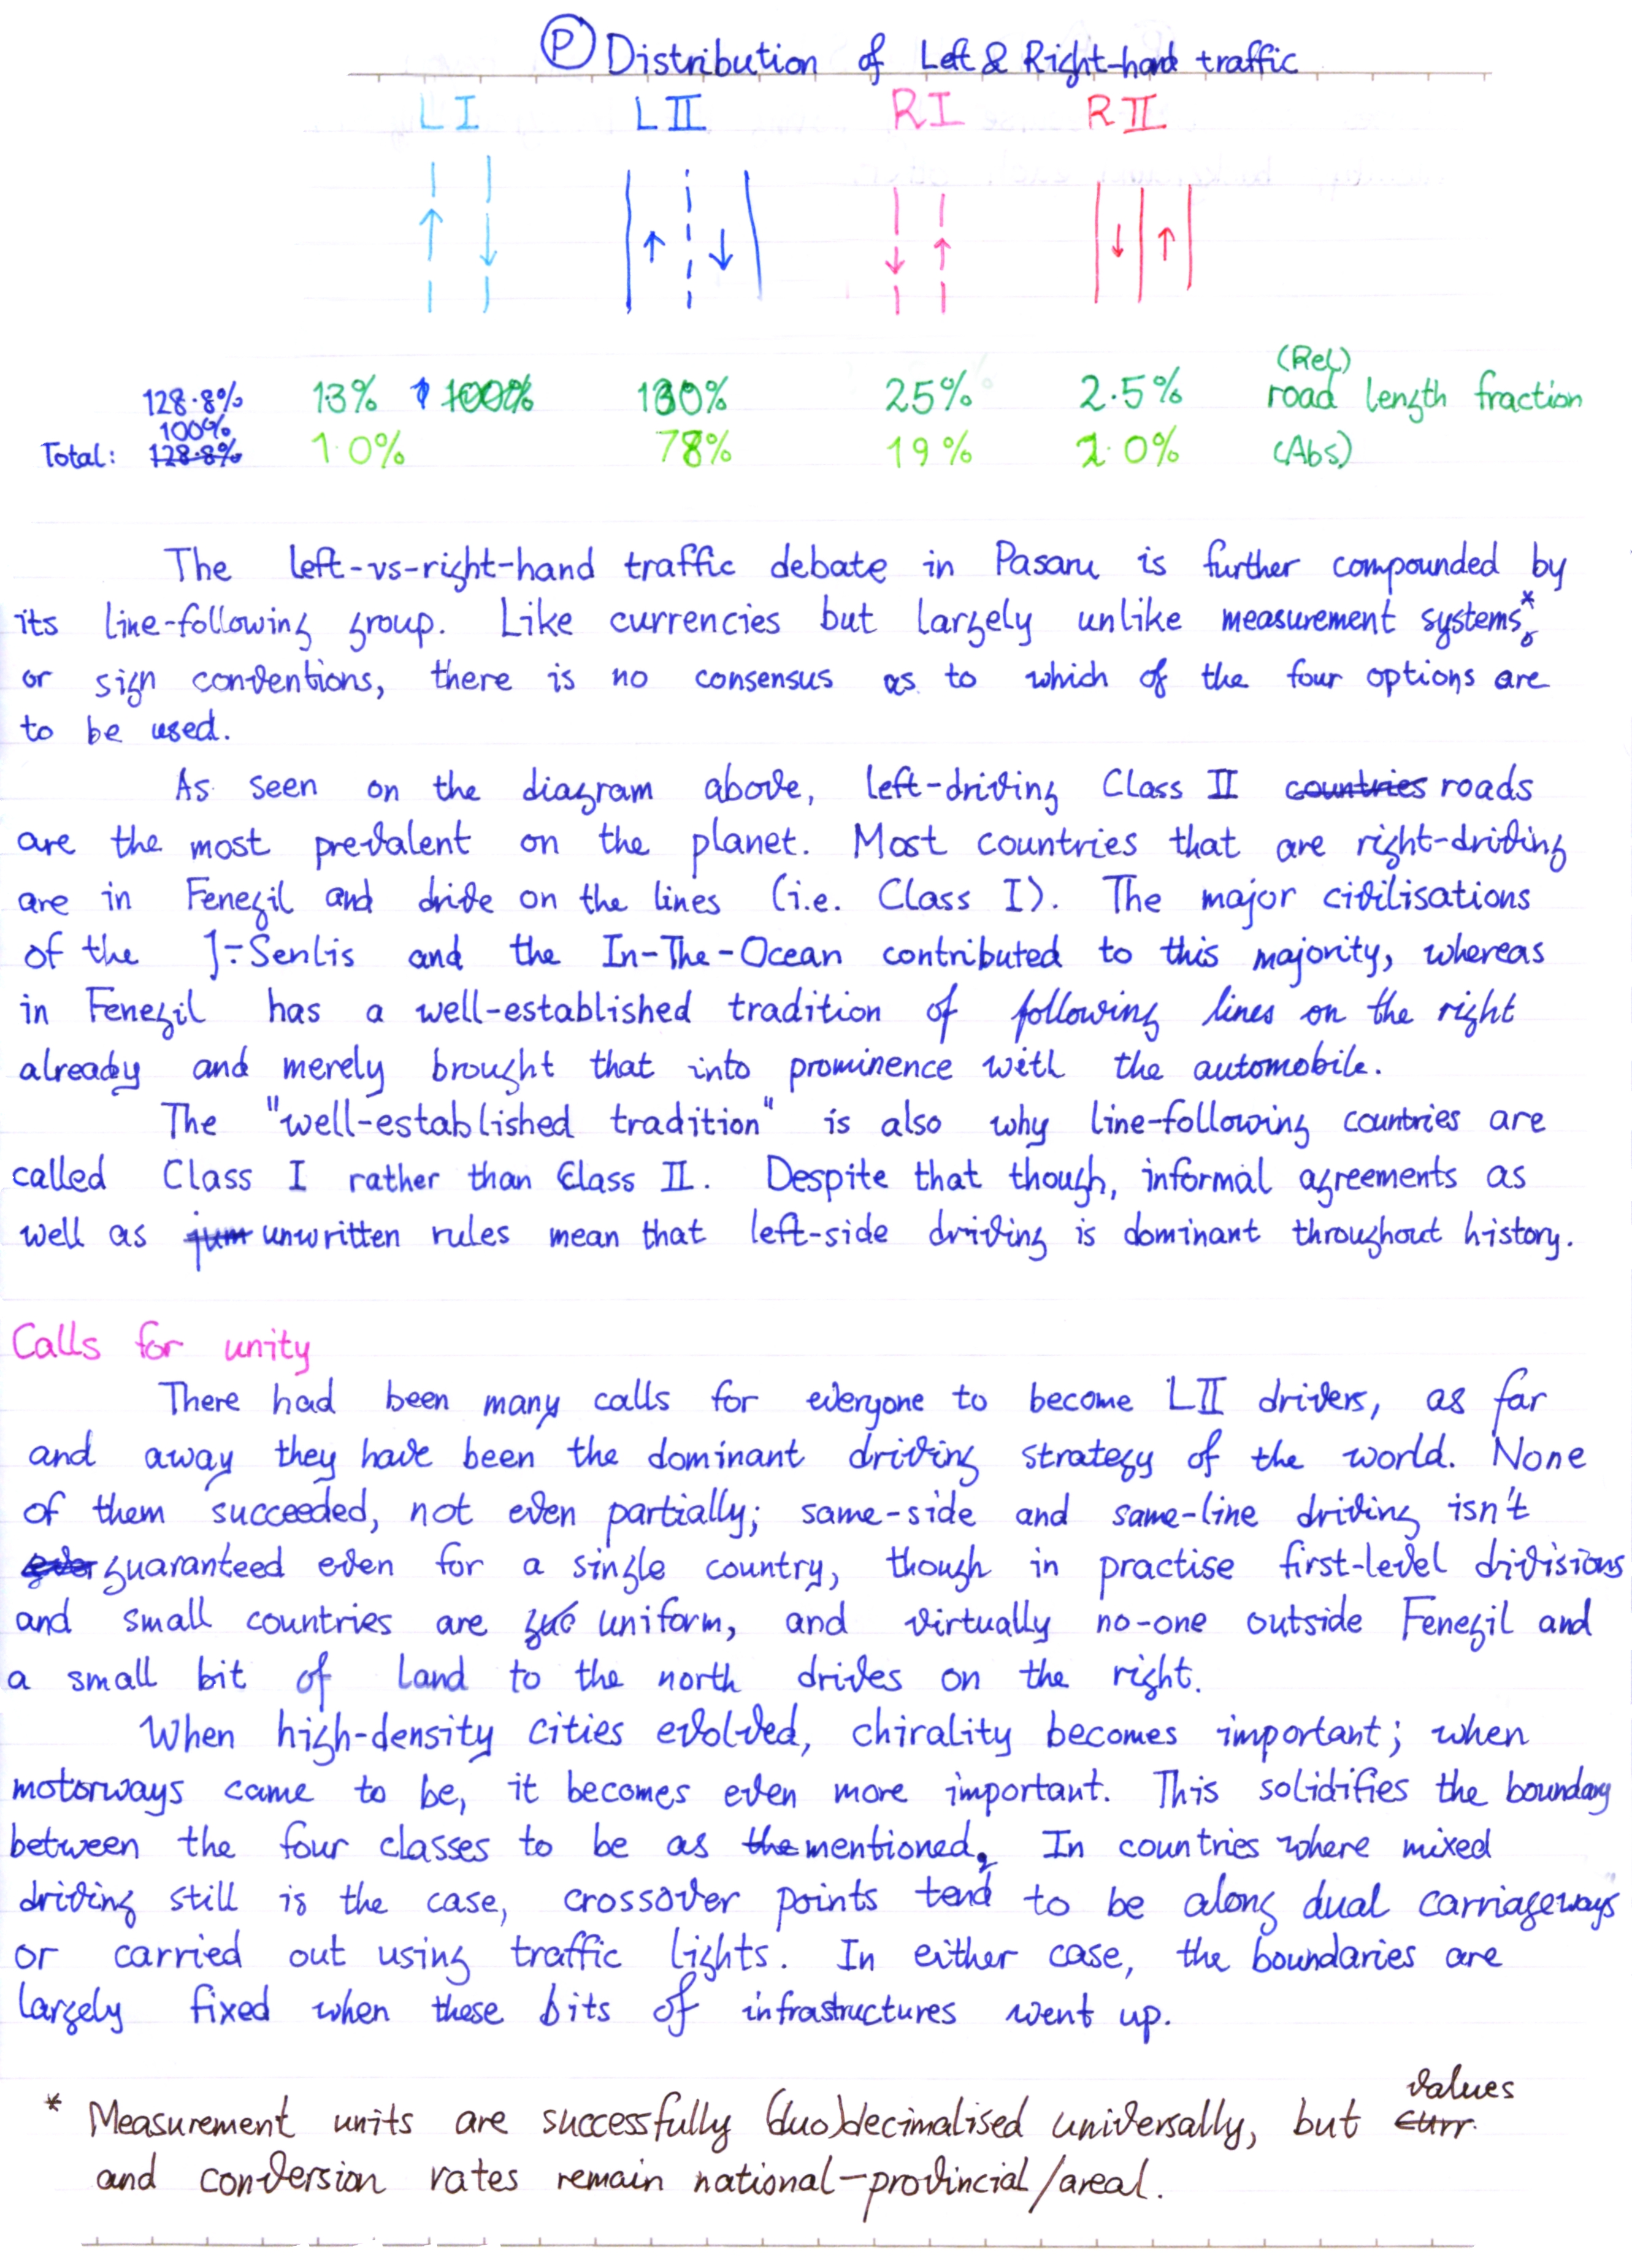 Ⓟ Distribution of Left & Right-hand traffic
LI LII RI RII
(Rel)
128.8% 13% 100% 100% 25% 2.5% road length fraction
100%
Total: 128.8% 1.0% 78% 19% 2.0% (Abs)
The left-vs-right-hand traffic debate in Pasaru is further compounded by
its line-following group. Like currencies but largely unlike measurement systems*,
or sign conventions, there is no consensus as to which of the four options are
to be used.
As seen on the diagram above, left-driving Class II countries roads
are the most prevalent on the planet. Most countries that are right-driving
are in Fenezil and drive on the lines (i.e. Class I). The major civilisations
of the Senlis and the In-The-Ocean contributed to this majority, whereas
in Fenezil has a well-established tradition of following lines on the right
already and merely brought that into prominence with the automobile.
The "well-established tradition" is also why line-following countries are
called Class I rather than Class II. Despite that though, informal agreements as
well as jum unwritten rules mean that left-side driving is dominant throughout history.
Calls for unity
There had been many calls for everyone to become LII drivers, as far
and away they have been the dominant driving strategy of the world. None
of them succeeded, not even partially; same-side and same-line driving isn't
guaranteed even for a single country, though in practise first-level divisions
and small countries are uniform, and virtually no-one outside Fenezil and
a small bit of Land to the north drives on the right.
When high-density cities evolved, chirality becomes important; when
motorways came to be, it becomes even more important. This solidifies the boundary
between the four classes to be as the mentioned. In countries where mixed
driving still is the case, crossover points tend to be along dual carriageways
or carried out using traffic lights. In either case, the boundaries are
largely fixed when these bits of infrastructures went up.
values
* Measurement units are successfully (duo)decimalised universally, but curr.
and conversion rates remain national-provincial/areal.